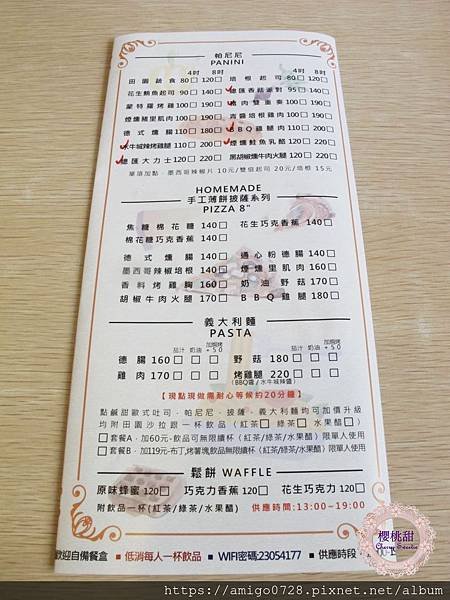 帕尼尼
PANINI
4吋 8吋 4吋 8吋
田園蔬食 80□ 120□ 培根起司 80□ 120□
花生鮪魚起司 90□ 140□ 德匯香菇派對 95□ 140□
蒙特羅烤雞 100□ 190□ 豬肉雙重奏 100□ 190□
煙燻豬里肌肉 100□ 190□ 青醬培根雞肉 100□ 190□
德式燻腸 110□ 180□ BBQ雞腿肉 110□ 200□
水牛城辣烤雞腿 110□ 200□ 煙燻鮭魚乳酪 120□ 220□
德匯大力士 120□ 220□ 黑胡椒燻牛肉火腿 120□ 220□
單項加點‧墨西哥辣椒片 10元/雙倍起司 20元/培根 15元
HOMEMADE
手工薄餅披薩系列
PIZZA 8"
焦糖棉花糖 140□ 花生巧克力 140□
棉花糖巧克香蕉 140□
德式燻腸 140□ 通心粉德腸 140□
墨西哥辣椒培根 140□ 煙燻里肌肉 160□
香料烤雞胸 160□ 奶油野菇 170□
胡椒牛肉火腿 170□ BBQ雞腿 180□
義大利麵
PASTA
茄汁 奶油 加焗烤+50 茄汁 奶油 加焗烤+50
德腸 160□□□ 野菇 180□□□
雞肉 170□□□ 烤雞腿 220□□□
(BBQ醬/水牛城辣醬)
【現點現做需耐心等候約20分鐘】
點鹹甜歐式吐司‧帕尼尼‧披薩‧義大利麵均可加價升級
均附田園沙拉跟一杯飲品(紅茶□ 綠茶□ 水果醋□)
□套餐A‧加60元‧飲品可無限續杯(紅茶/綠茶/水果醋)限單人使用
□套餐B‧加119元‧布丁,烤薯塊飲品無限續杯(紅茶/綠茶/水果醋)限單人使用
鬆餅 WAFFLE
原味蜂蜜 120□ 巧克力香蕉 120□ 花生巧克力 120□
附飲品一杯(紅茶/綠茶/水果醋) 供應時間:13:00~19:00
歡迎自備餐盒 ■低消每人一杯飲品 ■WIFI密碼:23054177 ■供應時段
櫻桃甜
https://amigo0728.pixnet.net/album